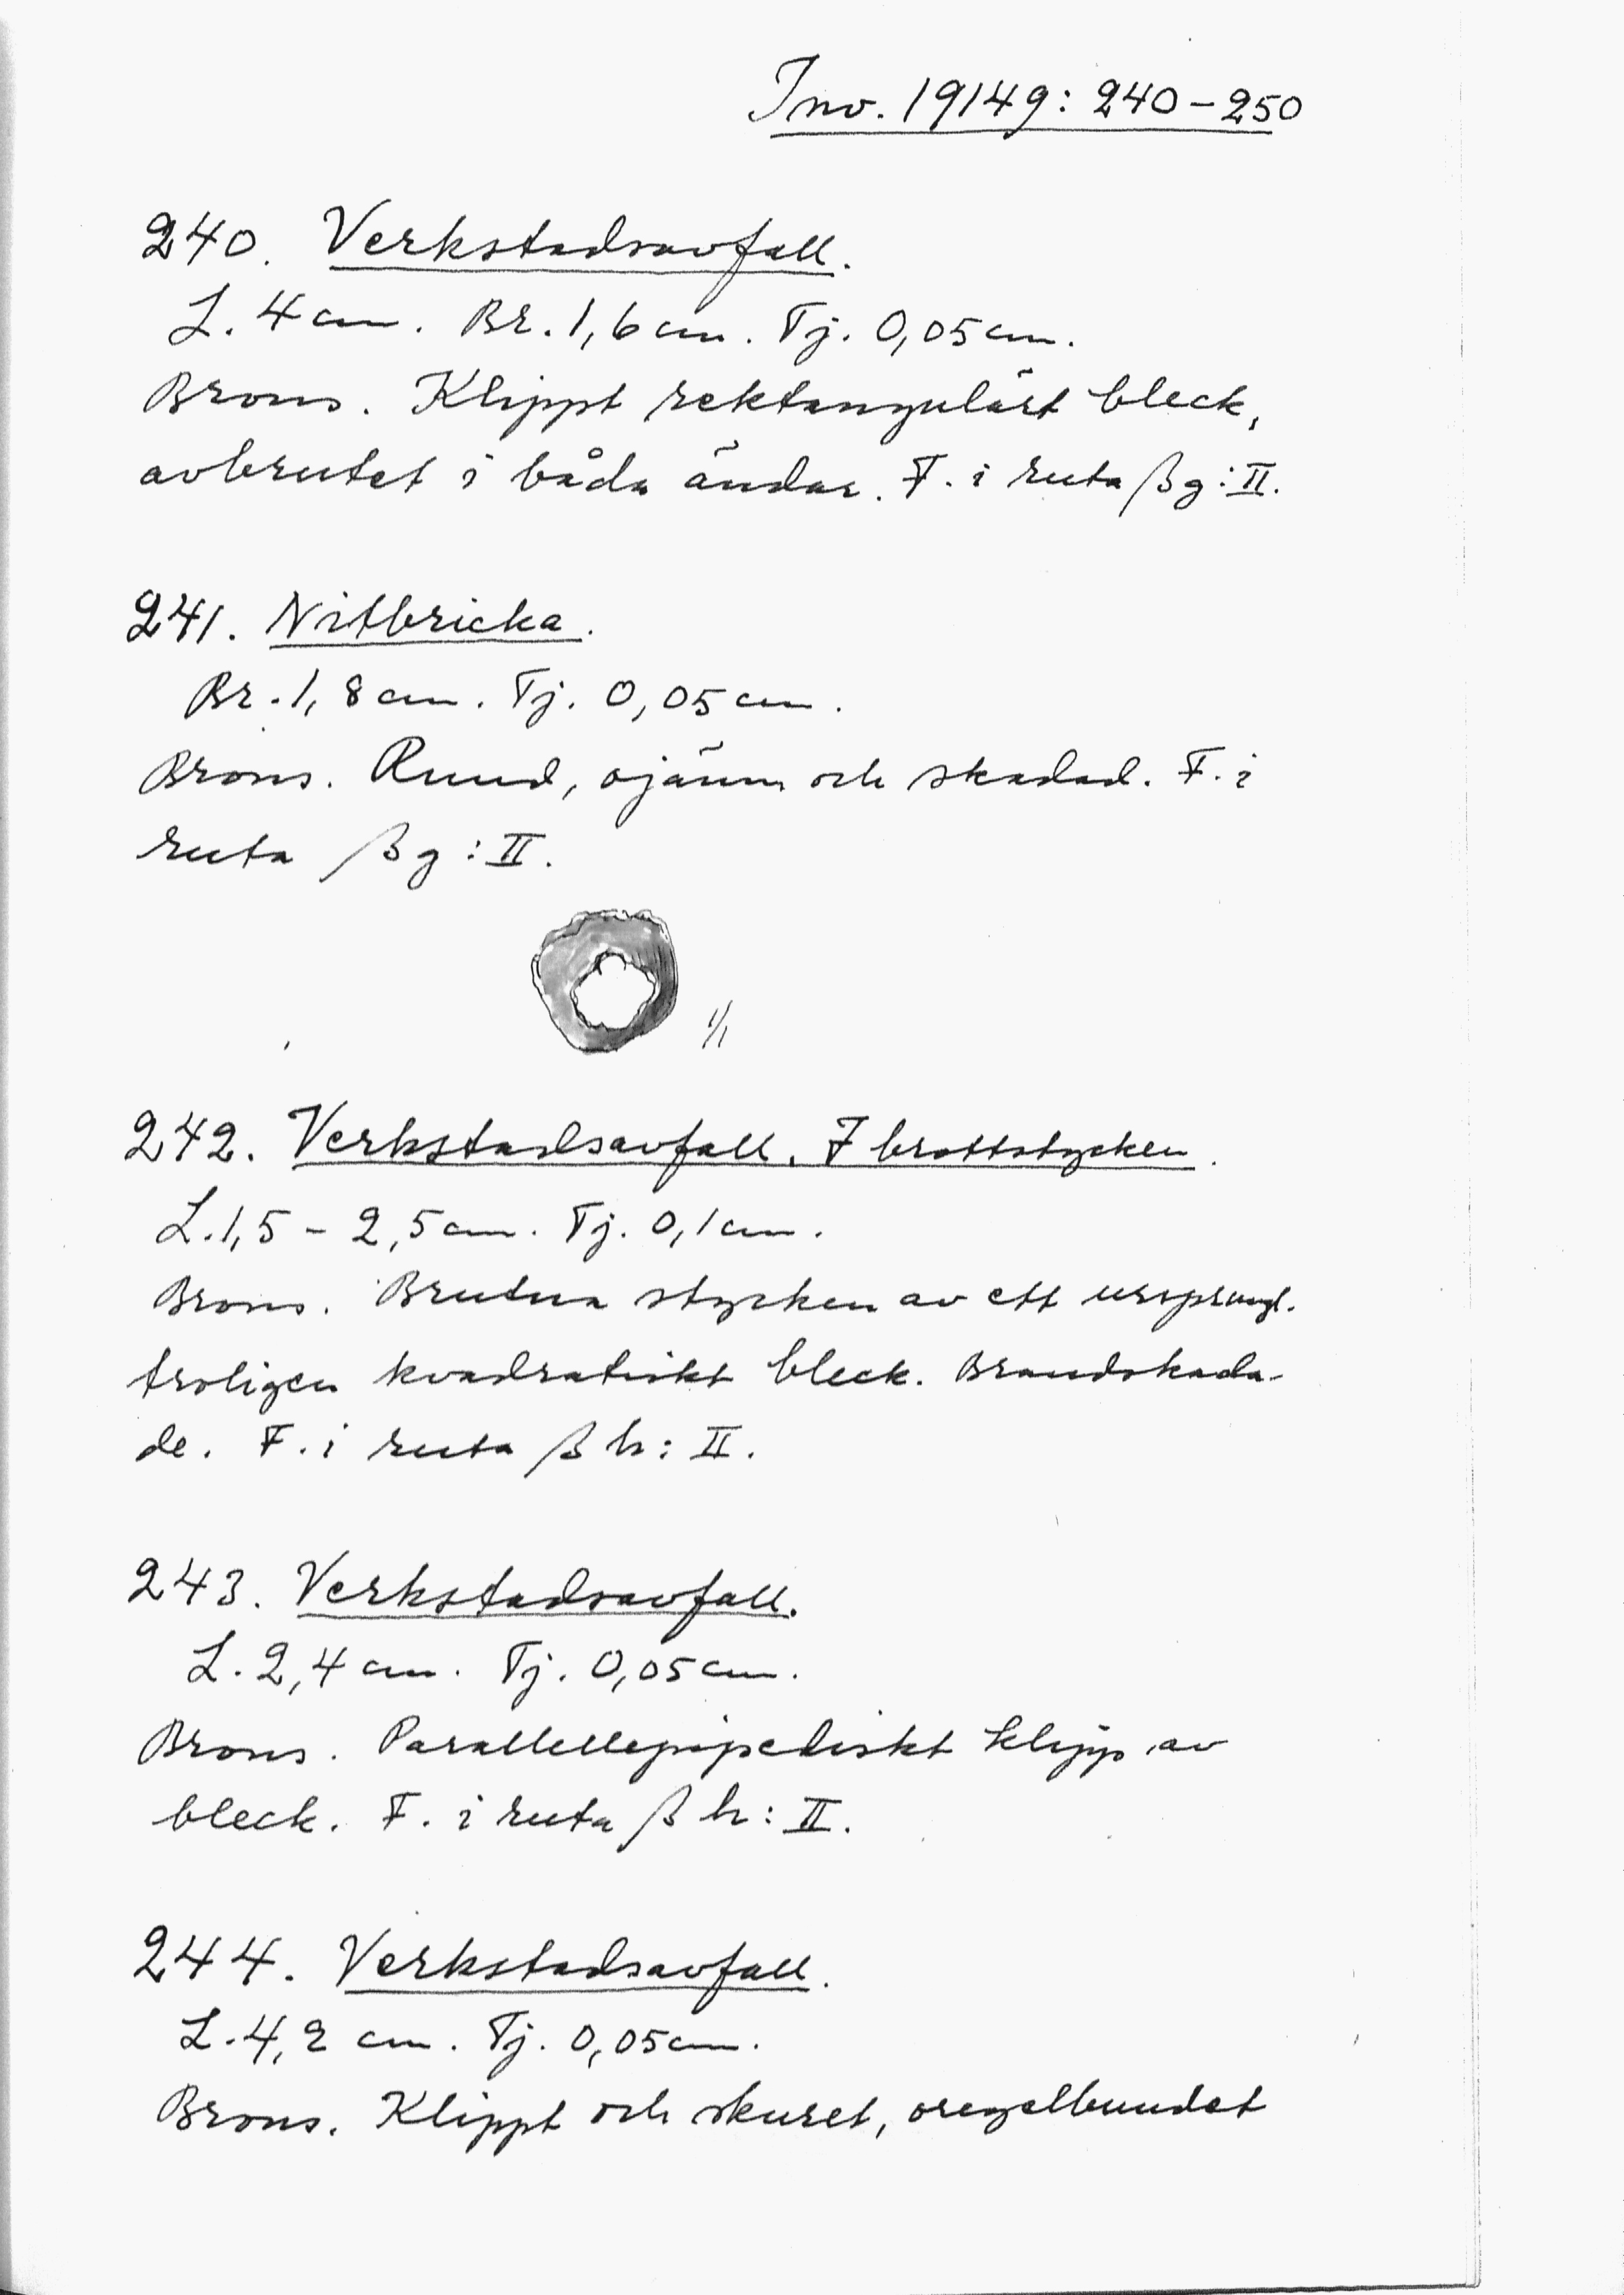 Inv. 19149: 240-250
240. Verkstadsavfall.
L. 4 cm. Br. 1,6 cm. Tj. 0,05 cm.
Brons. Klippt rektangulärt bleck,
avbrutet i båda ändar. F. i ruta βg: II.
241. Nitbricka.
Br. 1,8 cm. Tj. 0,05 cm.
Brons. Rund, ojämn och skadad. F. i
ruta βg: II.
1/1
242. Verkstadsavfall. 7 brottstycken.
L. 1,5 - 2,5 cm. Tj. 0,1 cm.
Brons. Brutna stycken av ett ursprungl.
troligen kvadratiskt bleck. Brandskada-
de. F. i ruta βh: II.
243. Verkstadsavfall.
L. 2,4 cm. Tj. 0,05 cm.
Brons. Parallellepipediskt klipp av
bleck. F. i ruta βh: II.
244. Verkstadsavfall.
L. 4,2 cm. Tj. 0,05 cm.
Brons. Klippt och skuret, oregelbundet